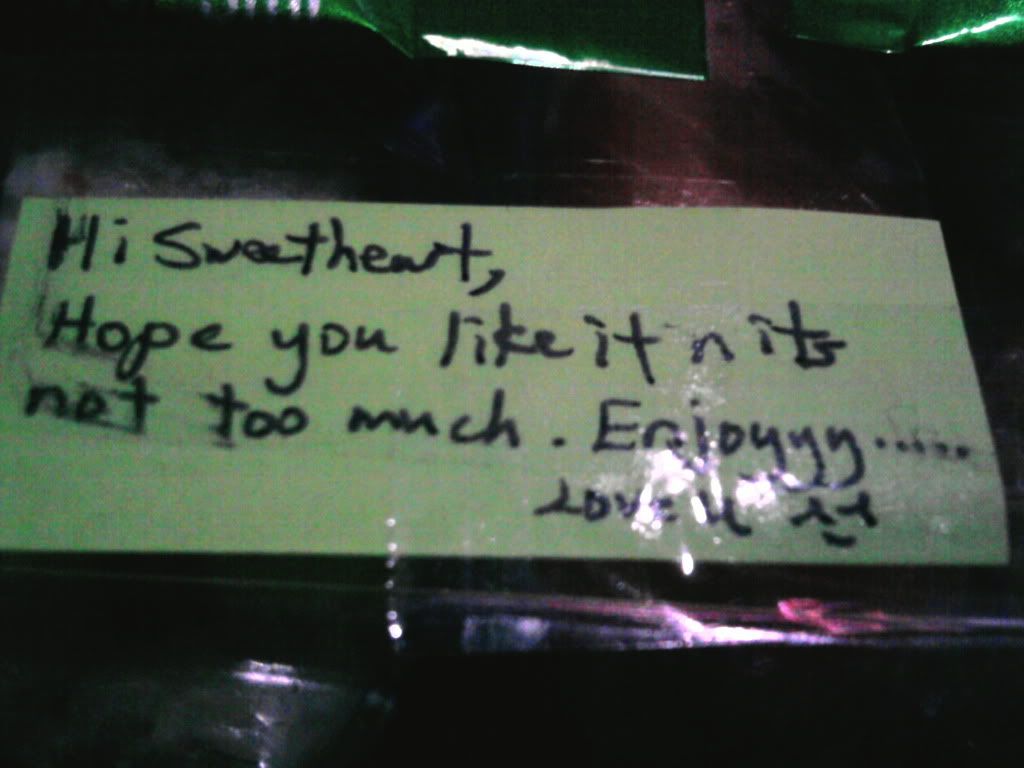 Hi Sweetheart,
Hope you like it n its
not too much. Enjoyyy.....
Love u